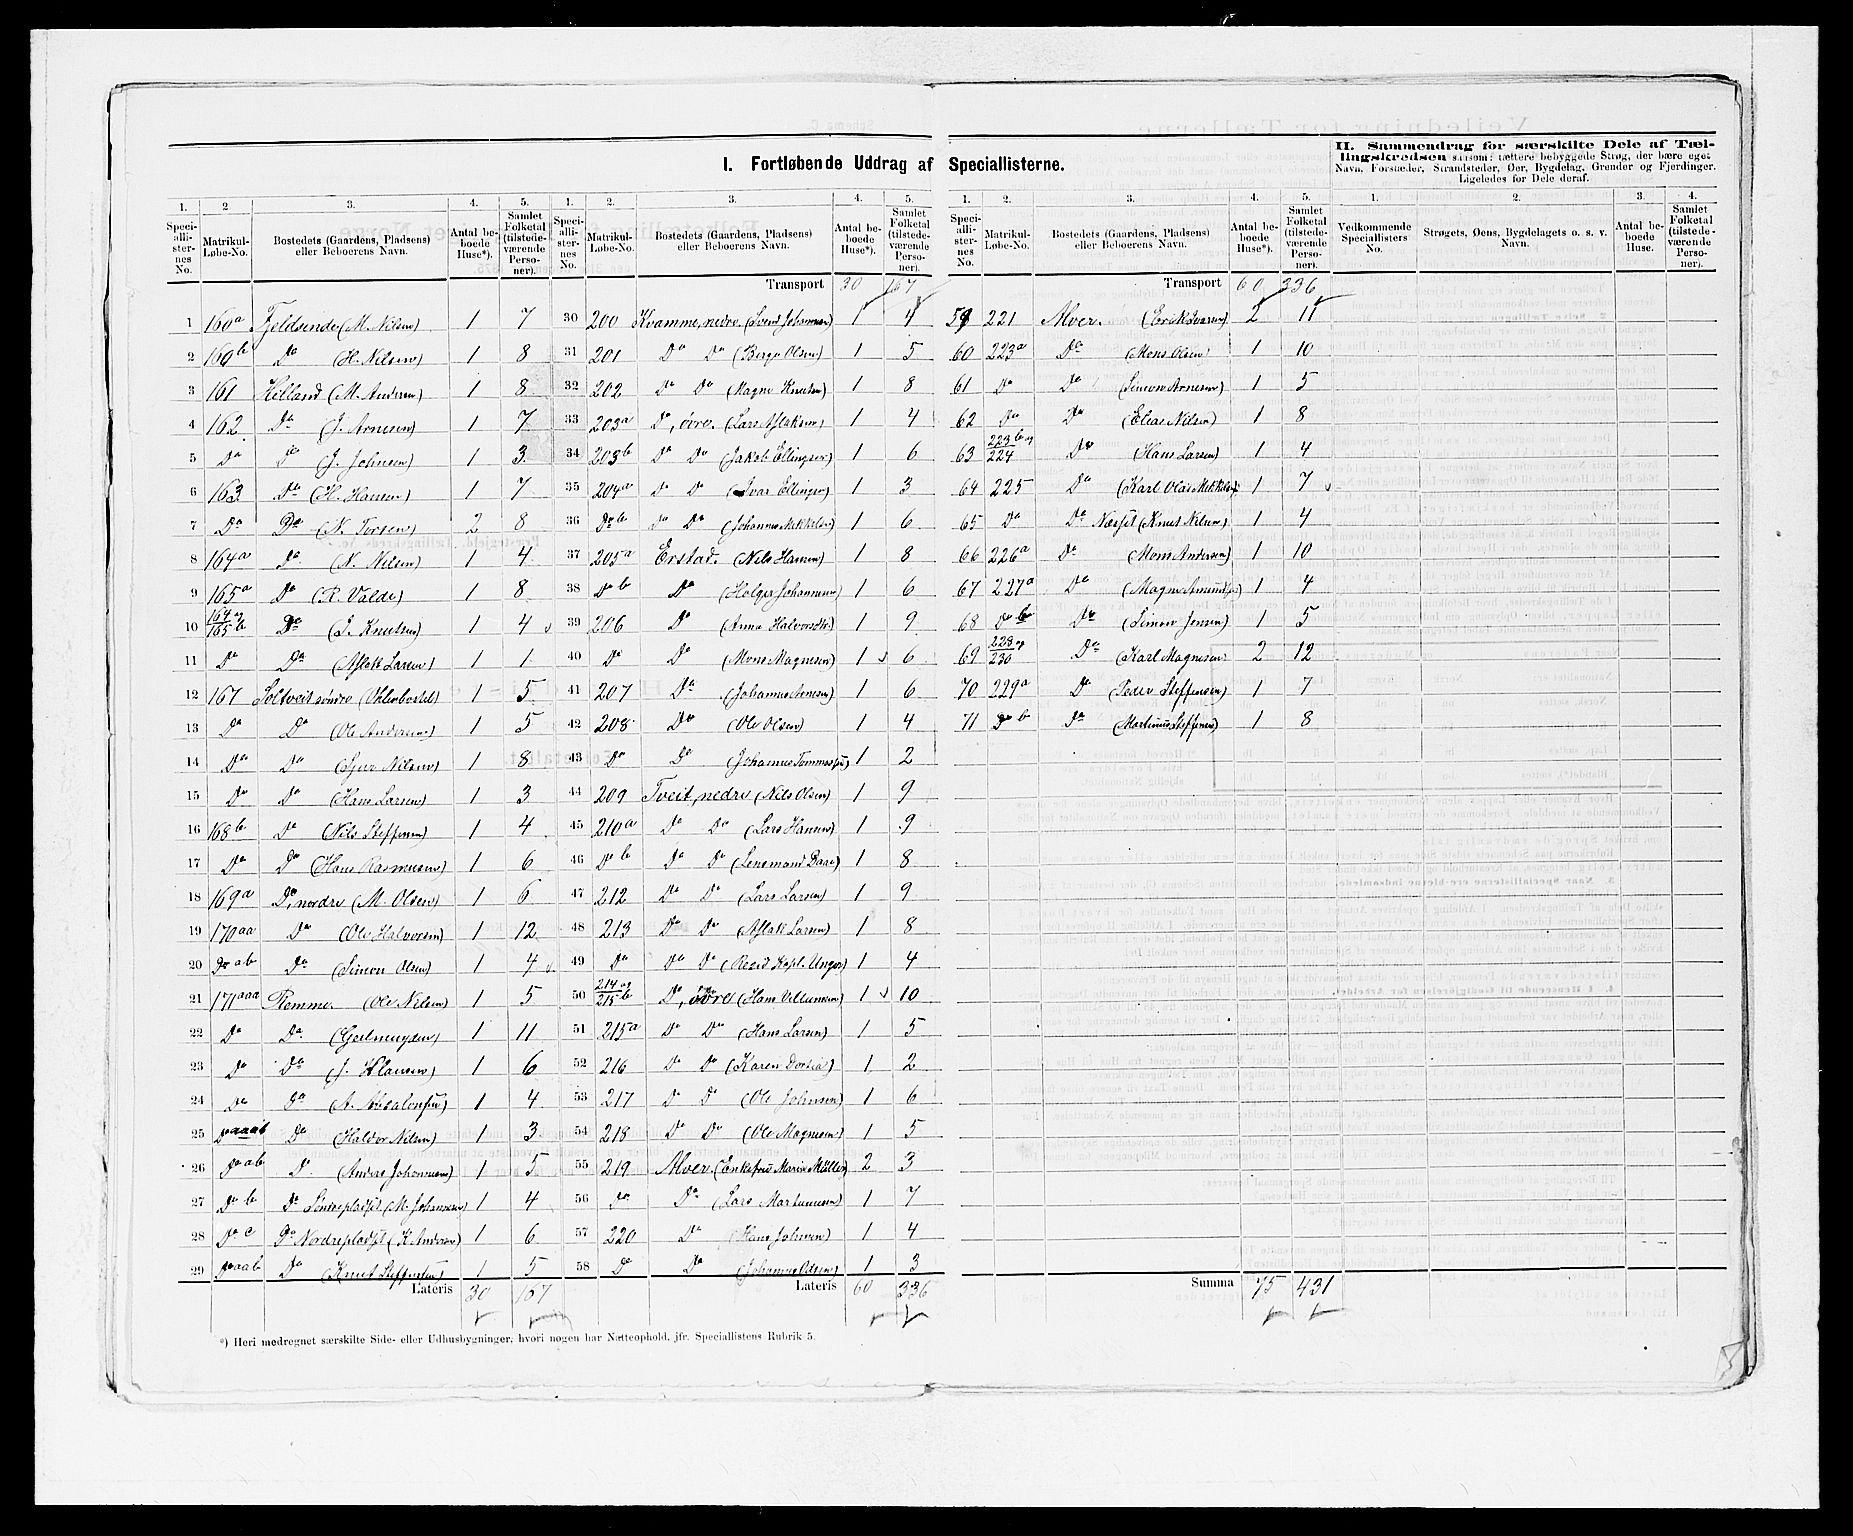 I. Fortløbende Uddrag af Speciallisterne.
II. Sammendrag for særskilte Dele af Tællingskredsen saasom: tættere bebyggede Strøg, der bære eget
Navn, Forstæder, Strandsteder, Øer, Bygdelag, Grender og Fjerdinger.
Ligeledes for Dele deraf.
1. 2 3. 4. 5. 1. 2. 3. 4. 5. 1. 2. 3. 4. 5. 1. 2. 3. 4.
Speciallisternes No. Matrikul-Løbe-No. Bostedets (Gaardens, Pladsens) eller Beboerens Navn. Antal beboede Huse*). Samlet Folketal (tilstedeværende Personer).
Speciallisternes No. Matrikul-Løbe-No. Bostedets (Gaardens, Pladsens) eller Beboerens Navn. Antal beboede Huse*). Samlet Folketal (tilstedeværende Personer).
Speciallisternes No. Matrikul-Løbe-No. Bostedets (Gaardens, Pladsens) eller Beboerens Navn. Antal beboede Huse*). Samlet Folketal (tilstedeværende Personer).
Vedkommende Speciallisters No. Strøgets, Øens, Bygdelagets o. s. v. Navn. Antal beboede Huse. Samlet Folketal (tilstedeværende Personer).
1 160a Fjeldsende (M. Nilsen) 1 7
2 160b Do (H. Nilsen) 1 8
3 161 Helland (M. Andersen) 1 8
4 162 Do (J. Arnesen) 1 7
5 Do Do (J. Johnsen) 1 3
6 163 Do (H. Hansen) 1 7
7 Do Do (N. Torgersen) 2 8
8 164a Do (N. Nilsen) 1 4
9 165a Do (R. Valde) 1 8
10 164 og 165b Do (J. Knutsen) 1 4
11 Do Do (Aslak Larsen) 1 1
12 167 Soltveit søndre 1 5
13 Do Do (Ole Andersen) 1 5
14 Do Do (Sjur Nilsen) 1 8
15 Do Do (Hans Larsen) 1 3
16 168b Do (Nils Steffensen) 1 4
17 Do Do (Hans Rasmusen) 1 6
18 169a Do, nordre (M. Olsen) 1 6
19 170aa Do (Ole Halvorsen) 1 12
20 Do ab Do (Simon Olsen) 1 4
21 171aaa Remme. (Ole Nilsen) 1 5
22 Do Do (Geelmuyden) 1 11
23 Do Do (J. Klausen) 1 6
24 Do Do (A. Absalonsen) 1 4
25 Do aaab Do (Haldor Nilsen) 1 3
26 Do ab Do (Anders Johannesen) 1 5
27 Do b Do (M. Johannesen) 1 4
28 Do c Do Nordrepladset (K. Andersen) 1 6
29 Do aab Do (Knut Steffensen) 1 5
Lateris 30 167
Transport 30 167
30 200 Kvamme, nedre (Svend Johannesen) 1 4
31 201 Do Do (Berge Olsen) 1 5
32 202 Do Do (Magne Knutsen) 1 8
33 203a Do, øvre (Lars Aslaksen) 1 4
34 203b Do Do (Jakob Ellingsen) 1 6
35 204a Do Do (Ivar Ellingsen) 1 3
36 Do b Do Do (Johannes Mikkelsen) 1 6
37 205a Erstad. (Nils Hansen) 1 8
38 Do b Do (Holger Johannesen) 1 6
39 206 Do (Anna Halvorsdtr) 1 9
40 Do Do (Mons Magnesen) 1 6
41 207 Do (Johannes Arnesen) 1 6
42 208 Do (Ole Olsen) 1 4
43 Do Do (Johannes Tommessen) 1 2
44 209 Tveit, nedre (Nils Olsen) 1 9
45 210a Do Do (Lars Hansen) 1 9
46 Do b Do Do (Lensmand Daae) 1 8
47 212 Do Do (Lars Larsen) 1 9
48 213 Do Do (Aslak Larsen) 1 8
49 Do Do Do (Resid. Kapl. Unger) 1 4
50 214 og 215b Do, øvre (Hans Villumsen) 1 10
51 215a Do Do (Hans Larsen) 1 5
52 216 Do Do (Karen Dortea) 1 2
53 217 Do Do (Ole Johnsen) 1 6
54 218 Do Do (Ole Magnesen) 1 5
55 219 Alver (Enkefru Marie Müller) 2 3
56 Do Do (Lars Martinusen) 1 7
57 220 Do (Hans Johnsen) 1 4
58 Do Do (Johannes Olsen) 1 3
Lateris 60 336
Transport 60 336
59 221 Alver. (Erik Ivarsen) 2 11
60 223a Do (Mons Olsen) 1 10
61 Do Do (Simon Arnesen) 1 5
62 Do Do (Elias Nilsen) 1 8
63 223b og 224 Do (Hans Larsen) 1 4
64 225 Do (Karl Olai Mikkelsen) 1 7
65 Do Do Næsset (Knut Nilsen) 1 4
66 226a Do (Mons Andersen) 1 10
67 227a Do (Magne Amundsen) 1 4
68 Do b Do (Simon Jensen) 1 5
69 228 og 230 Do (Karl Magnesen) 2 12
70 229a Do (Peder Steffensen) 1 7
71 Do b Do (Martinus Steffensen) 1 8
Summa 75 431
*) Heri medregnet særskilte Side- eller Udhusbygninger, hvori nogen har Natteophold, jfr. Speciallistens Rubrik 5.